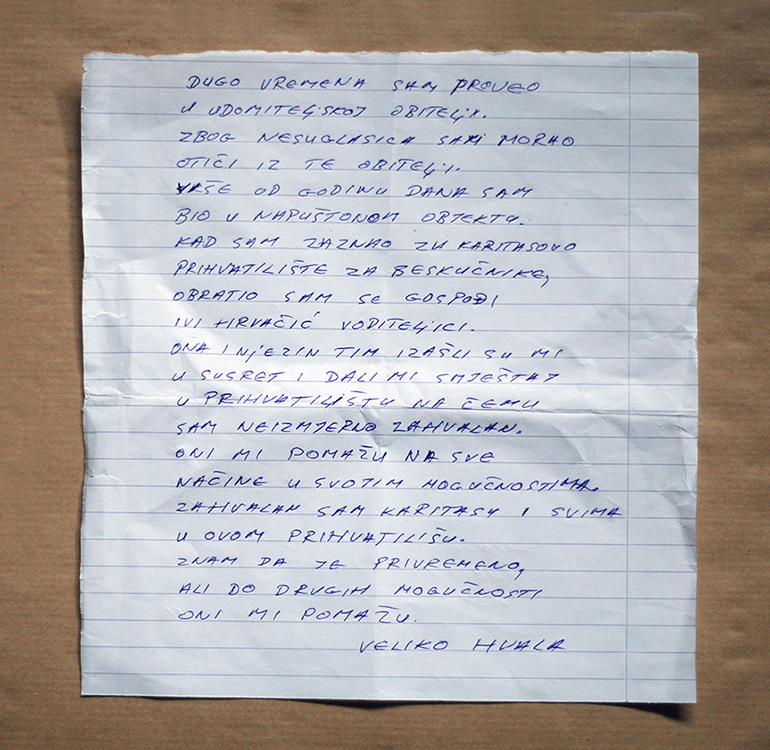 DUGO VREMENA SAM PROVEO
U UDOMITELJSKOJ OBITELJI.
ZBOG NESUGLASICA SAM MORAO
OTIČI IZ TE OBITELJI.
VIŠE OD GODINU DANA SAM
BIO U NAPUŠTONOM OBJEKTU.
KAD SAM ZAZNAO ZU KARITASOVO
PRIHVATILIŠTE ZA BESKUČNIKE,
OBRATIO SAM SE GOSPOĐI
IVI HRVAČIĆ VODITELJICI.
ONA I NJEZIN TIM IZAŠLI SU MI
U SUSRET I DALI MI SMJEŠTAJ
U PRIHVATILIŠTU NA ČEMU
SAM NEIZMJERNO ZAHVALAN.
ONI MI POMAŽU NA SVE
NAČINE U SVOJIM MOGUČNOSTIMA.
ZAHVALAN SAM KARITASU I SVIMA
U OVOM PRIHVATILIŠU.
ZNAM DA JE PRIVREMENO,
ALI DO DRUGIH MOGUČNOSTI
ONI MI POMAŽU.
VELIKO HVALA